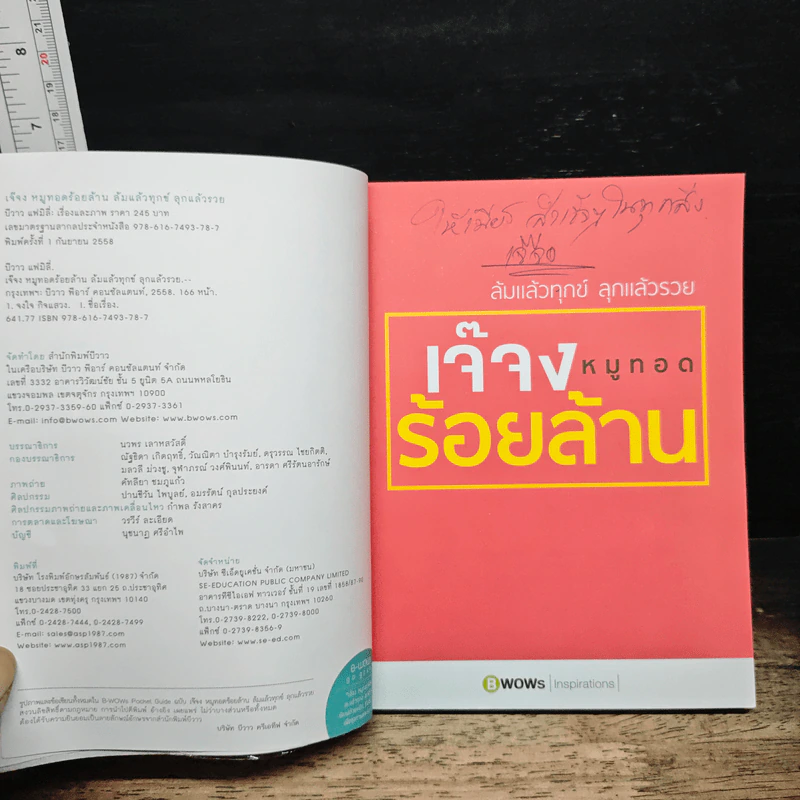 เจ๊จง หมูทอดร้อยล้าน ล้มแล้วทุกข์ ลุกแล้วรวย
บีวาว แฟมิลี่: เรื่องและภาพ ราคา 245 บาท
เลขมาตรฐานสากลประจำหนังสือ 978-616-7493-78-7
พิมพ์ครั้งที่ 1 กันยายน 2558
บีวาว แฟมิลี่.
เจ๊จง หมูทอดร้อยล้าน ล้มแล้วทุกข์ ลุกแล้วรวย.--
กรุงเทพฯ: บีวาว พีอาร์ คอนซัลแตนท์, 2558. 166 หน้า.
1. จงใจ กิจแสวง. 1. ชื่อเรื่อง.
641.77 ISBN 978-616-7493-78-7
จัดทำโดย สำนักพิมพ์บีวาว
ในเครือบริษัท บีวาว พีอาร์ คอนซัลแตนท์ จำกัด
เลขที่ 3332 อาคารวิวัฒน์ชัย ชั้น 5 ยูนิต 5A ถนนพหลโยธิน
แขวงจอมพล เขตจตุจักร กรุงเทพฯ 10900
โทร.0-2937-3359-60 แฟ็กซ์ 0-2937-3361
E-mail: info@bwows.com Website: www.bwows.com
บรรณาธิการ นวพร เลาหสวัสดิ์
กองบรรณาธิการ ณัฐธิดา เกิดฤทธิ์, วัณณิตา บำรุงรัมย์, ดรุวรรณ ไชยกิตติ,
มลวลี ม่วงชู, จุฬาภรณ์ วงศ์พินนท์, อารดา ศรีรัตนอารักษ์
ภาพถ่าย คัทลียา ชมภูแก้ว
ศิลปกรรม ปานชีวัน ไพบูลย์, อมรรัตน์ กุลประยงค์
ศิลปกรรมภาพถ่ายและภาพเคลื่อนไหว กำพล รังสาคร
การตลาดและโฆษณา วรวีร์ ละเอียด
บัญชี นุชนาฎ ศรีอำไพ
พิมพ์ที่
บริษัท โรงพิมพ์อักษรสัมพันธ์ (1987) จำกัด
18 ซอยประชาอุทิศ 33 แยก 25 ถ.ประชาอุทิศ
แขวงบางมด เขตทุ่งครุ กรุงเทพฯ 10140
โทร.0-2428-7500
แฟ็กซ์ 0-2428-7444, 0-2428-7499
E-mail: sales@asp1987.com
Website: www.asp1987.com
จัดจำหน่าย
บริษัท ซีเอ็ดยูเคชั่น จำกัด (มหาชน)
SE-EDUCATION PUBLIC COMPANY LIMITED
อาคารทีซีไอเอฟ ทาวเวอร์ ชั้นที่ 19 เลขที่ 1858/87-90
ถ.บางนา-ตราด บางนา กรุงเทพฯ 10260
โทร.0-2739-8222, 0-2739-8000
แฟ็กซ์ 0-2739-8356-9
Website: www.se-ed.com
รูปภาพและข้อเขียนทั้งหมดใน B-WOWs Pocket Guide ฉบับ เจ๊จง หมูทอดร้อยล้าน ล้มแล้วทุกข์ ลุกแล้วรวย
สงวนลิขสิทธิ์ตามกฎหมาย การนำไปตีพิมพ์ อ้างอิง เผยแพร่ ไม่ว่าบางส่วนหรือทั้งหมด
ต้องได้รับความยินยอมเป็นลายลักษณ์อักษรจากสำนักพิมพ์บีวาว
บริษัท บีวาว ครีเอทีฟ จำกัด
ในทุกสิ่ง
เจ๊จง
ล้มแล้วทุกข์ ลุกแล้วรวย
เจ๊จง หมูทอด
ร้อยล้าน
BWOWs | Inspirations |